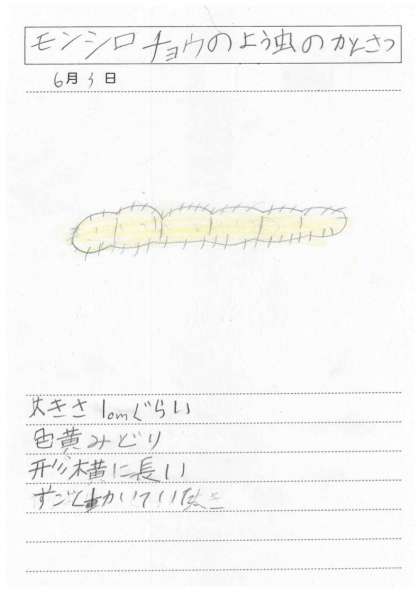 モンシロチョウのよう虫のかんさつ
6月5日
大きさ 1cmぐらい
色黄みどり
形横に長い
ずっと動いていた